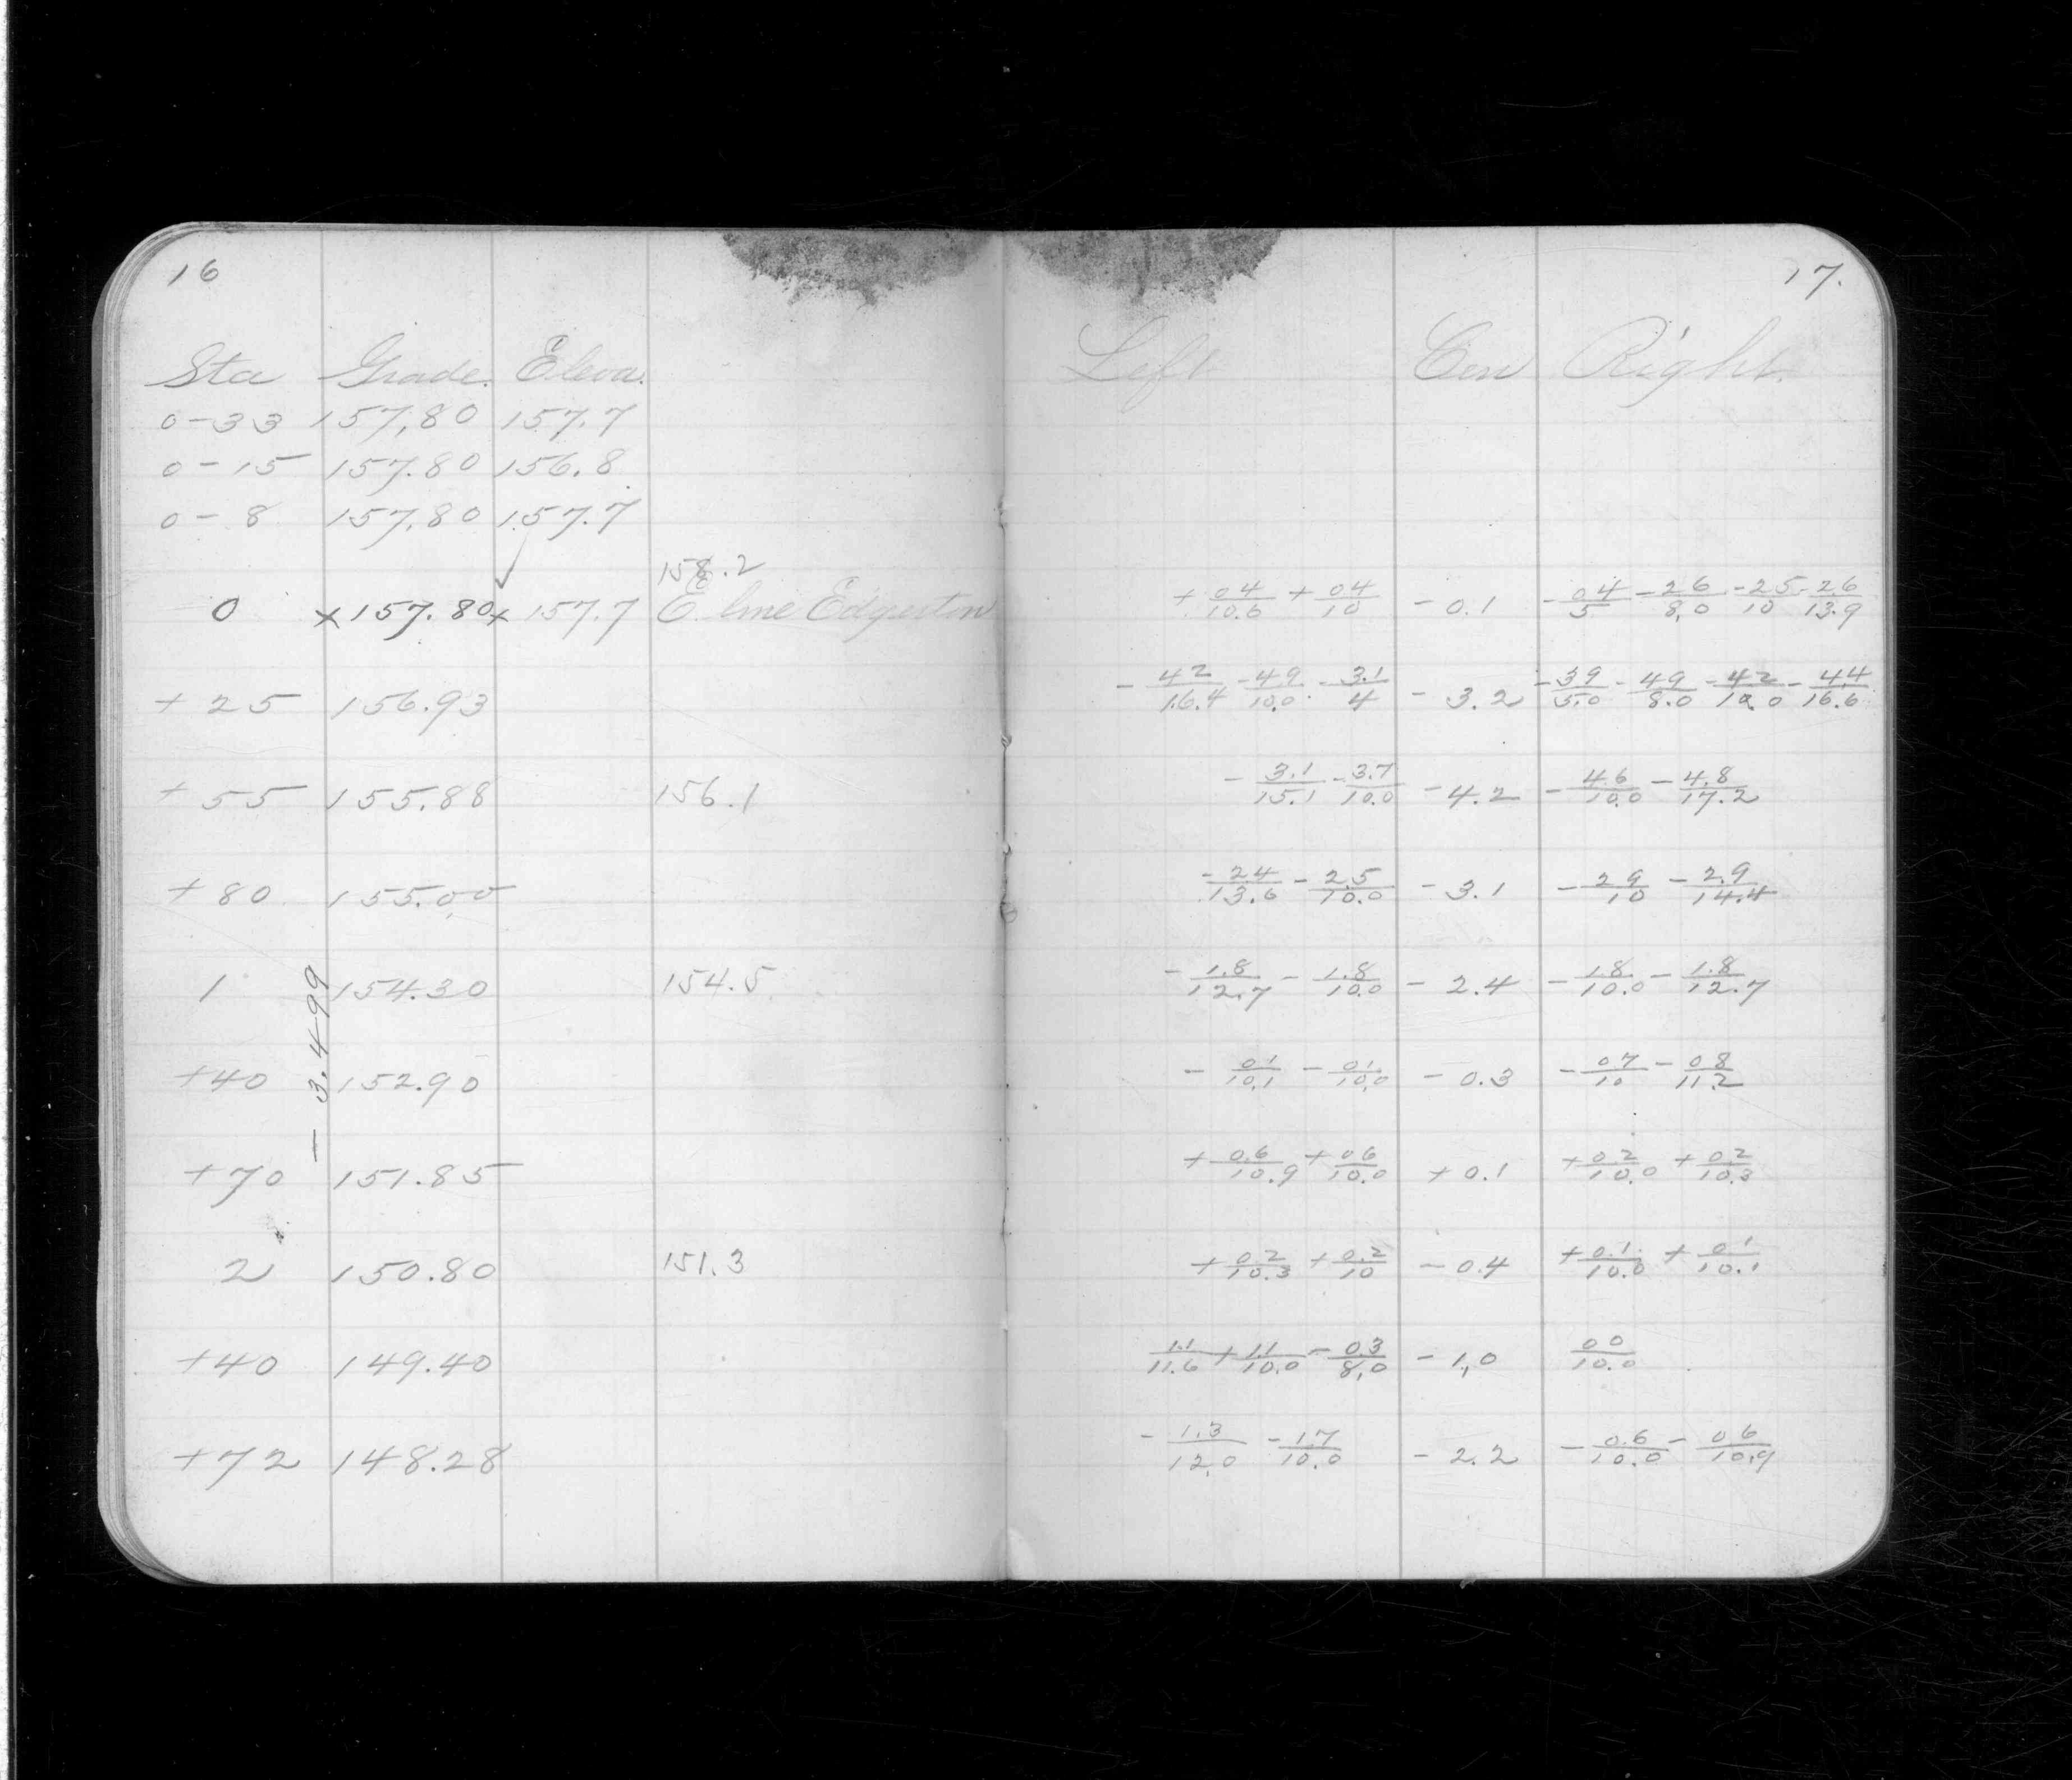 16
Sta Grade. Eleva.
0-33 157.80 157.7
0-15 157.80 156.8
0-8 157.80 157.7
158.2
0 x157.80x 157.7 E. line Edgerton
+25 156.93
+55 155.88 156.1
+80 155.00
1 154.30 154.5
- 3.499
+40 152.90
+70 151.85
2 150.80 151.3
+40 149.40
+72 148.28
17.
Left Cen Right.
+ 04/10.6 + 04/10 - 0.1 - 04/5 - 26/8.0 - 25/10 - 26/13.9
- 42/16.4 - 49/10.0 - 3.1/4 - 3.2 - 39/5.0 - 49/8.0 - 42/10.0 - 44/16.6
- 3.1/15.1 - 3.7/10.0 - 4.2 - 4.6/10.0 - 4.8/17.2
- 24/13.6 - 25/10.0 - 3.1 - 29/10 - 2.9/14.4
- 1.8/12.7 - 1.8/10.0 - 2.4 - 1.8/10.0 - 1.8/12.7
- 01/10.1 - 01/10.0 - 0.3 - 07/10 - 08/11.2
+ 0.6/10.9 + 06/10.0 + 0.1 + 02/10.0 + 02/10.3
+ 0.2/10.3 + 0.2/10 - 0.4 + 0.1/10.0 + 01/10.1
1.1/11.6 + 1.1/10.0 - 0.3/8.0 - 1.0 00/10.0
- 1.3/12.0 - 1.7/10.0 - 2.2 - 0.6/10.0 - 06/10.9